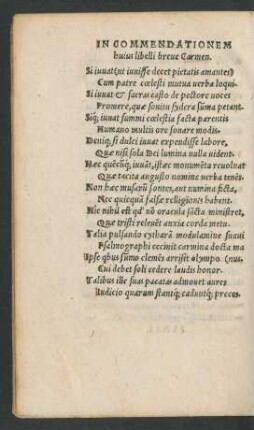 IN COMMENDATIONEM
huius libelli breue Carmen.
Si iuuat (ut iuuisse decet pietatis amantes)
Cum patre cœlesti mutua uerba loqui
Si iuuat & sacras casto de pectore uoces
Promere, quæ sonitu sydera sūma petant.
Siq; iuuat summi cœlestia facta parentis
Humano multis ore sonare modis.
Deniq; si dulci iuuat expendisse labore,
Quæ nisi sola Dei lumina nulla uident.
Hæc quēcūq; iuuāt, istæc monumēta reuoluat
Quæ tacita augusto nomine uerba tenēt.
Non hæc musarū fontes, aut numina ficta,
Nec quicquā falsæ relligionis habent.
Hic nihil est qd' nō oracula sācta ministret,
Quæ tristi releuēt anxia corda metu.
Talia pulsando cytharā modulamine suaui
Psalmographi cecinit carmina docta manus.
Ipse qbus sūmo clemēs arrisit olympo
Cui debet soli cedere laudis honor.
Talibus ille suas pacatas admouet aures
Iudicio quarum stantq; caduntq; preces.